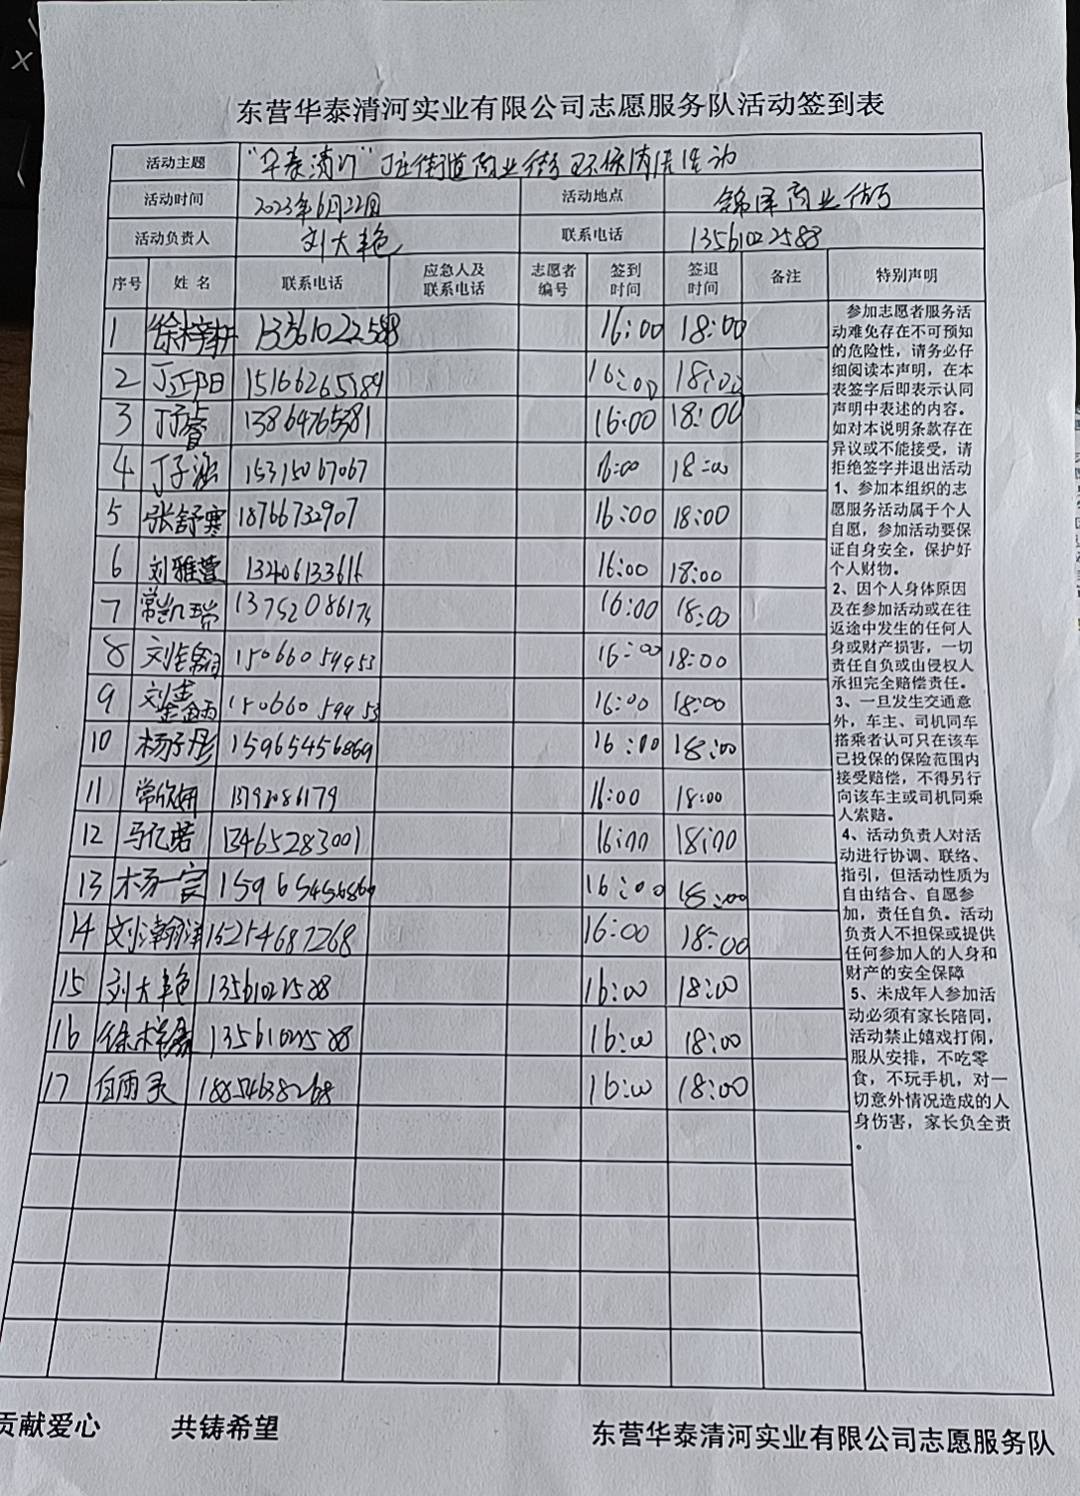 东营华泰清河实业有限公司志愿服务队活动签到表
活动主题 “华泰清河”丁庄街道商业街环保清洁活动
活动时间 2023年6月22日 活动地点 锦泽商业街
活动负责人 刘大艳 联系电话 13561022588
序号 姓名 联系电话 应急人及联系电话 志愿者编号 签到时间 签退时间 备注 特别声明
1 徐梓轩 13361022588 16:00 18:00
2 丁正阳 15166265184 16:00 18:00
3 丁子睿 13864765381 16:00 18:00
4 丁子涵 15315067067 16:00 18:00
5 张舒寒 18766732907 16:00 18:00
6 刘雅萱 13406133616 16:00 18:00
7 常凯瑞 16:00 18:00
8 15066059953 16:00 18:00
9 16:00 18:00
10 杨子彤 15965456869 16:00 18:00
11 常欣妍 16:00 18:00
12 马亿诺 13465283001 16:00 18:00
13 杨一宸 15965456869 16:00 18:00
14 刘瀚泽 15254687268 16:00 18:00
15 刘大艳 13561022588 16:00 18:00
16 16:00 18:00
17 白雨灵 18854638268 16:00 18:00
参加志愿者服务活
动难免存在不可预知
的危险性，请务必仔
细阅读本声明，在本
表签字后即表示认同
声明中表述的内容。
如对本说明条款存在
异议或不能接受，请
拒绝签字并退出活动
1、参加本组织的志
愿服务活动属于个人
自愿，参加活动要保
证自身安全，保护好
个人财物。
2、因个人身体原因
及在参加活动或在往
返途中发生的任何人
身或财产损害，一切
责任自负或由侵权人
承担完全赔偿责任。
3、一旦发生交通意
外，车主、司机同车
搭乘者认可只在该车
已投保的保险范围内
接受赔偿，不得另行
向该车主或司机同乘
人索赔。
4、活动负责人对活
动进行协调、联络、
指引，但活动性质为
自由结合、自愿参
加，责任自负。活动
负责人不担保或提供
任何参加人的人身和
财产的安全保障
5、未成年人参加活
动必须有家长陪同，
活动禁止嬉戏打闹，
服从安排，不吃零
食，不玩手机，对一
切意外情况造成的人
身伤害，家长负全责
。
贡献爱心 共铸希望 东营华泰清河实业有限公司志愿服务队